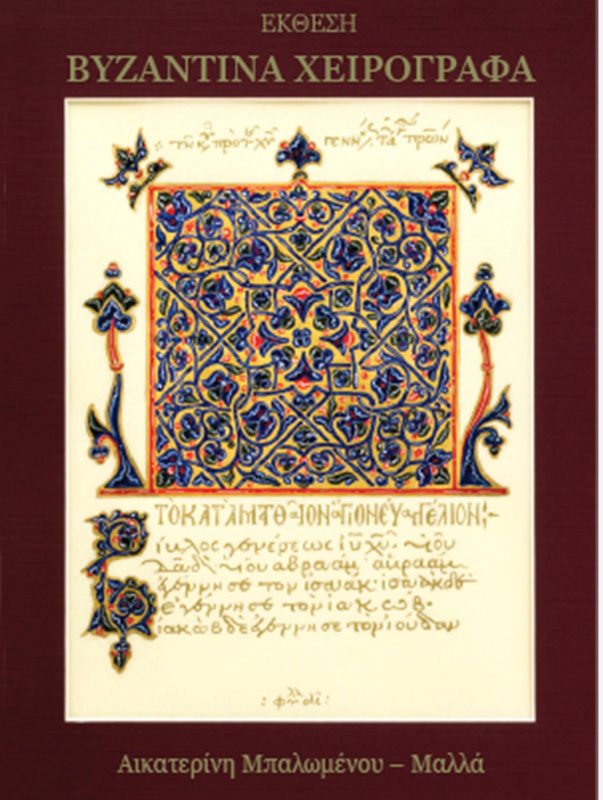 ΕΚΘΕΣΗ
ΒΥΖΑΝΤΙΝΑ ΧΕΙΡΟΓΡΑΦΑ
ΤΟ ΚΑΤΑ ΜΑΤΘΑΙΟΝ ΑΓΙΟΝ ΕΥΑΓΓΕΛΙΟΝ
ίβλος γενέσεως ἰῡ χῡ υἱοῦ
δᾱδ υἱοῦ ἀβραάμ ἀβραὰμ
ἐγέννησε τὸν ἰσαάκ· ἰσαὰκ δὲ
ἐγέννησε τὸν ἰακώβ·
ἰακὼβ δὲ ἐγέννησε τὸν ἰούδαν
Αικατερίνη Μπαλωμένου – Μαλλά